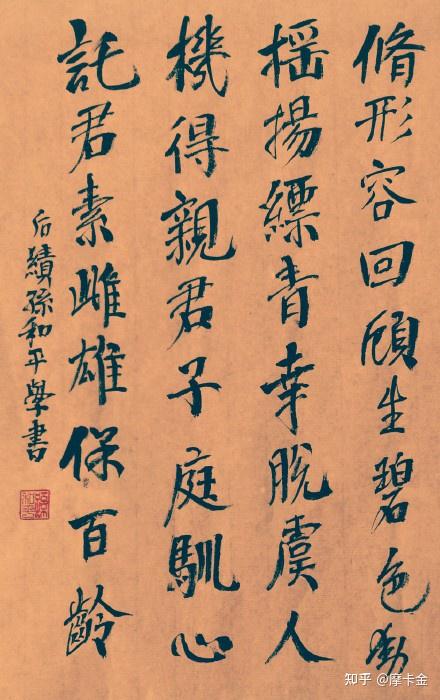 脩形容回頋生碧色動
揺揚縹青幸脱虞人
機得親君子庭馴心
託君素雌雄保百齡
后績孫和平學書
知乎 @摩卡金